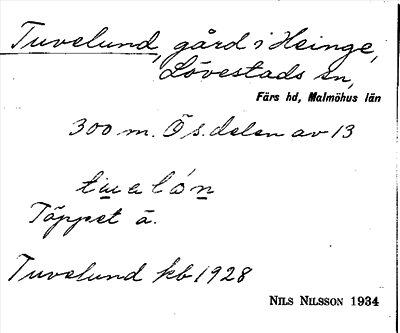 Tuvelund, gård i Heinge,
Lövestads sn,
Färs hd, Malmöhus län
300 m. Ö s. delen av 13
Täppet ä.
Tuvelund kb 1928
NILS NILSSON 1934